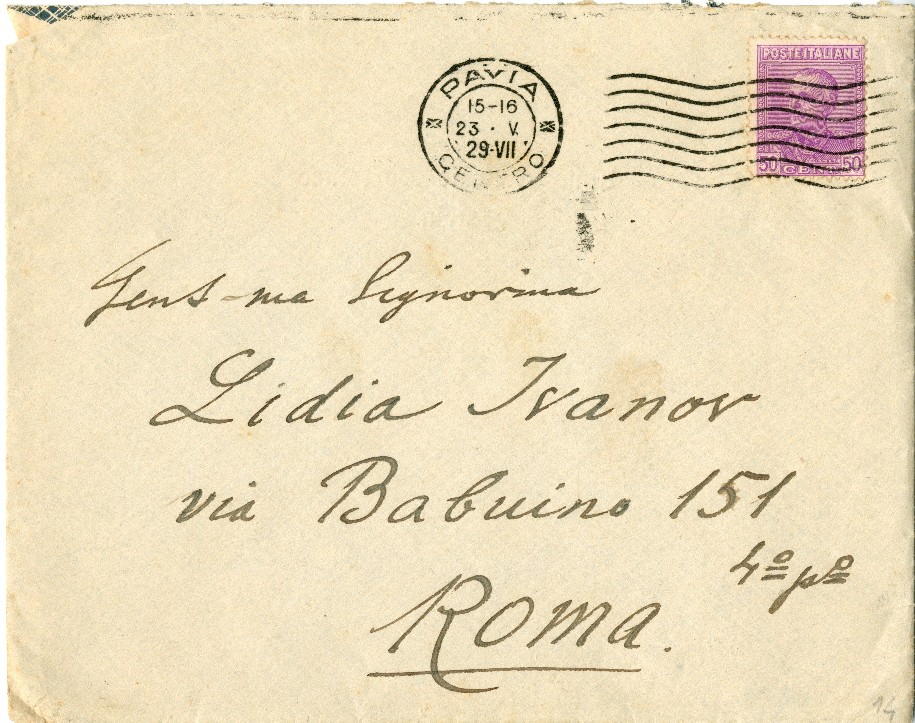 PAVIA
15-16
23 · V.
29-VII
CENTRO
POSTE ITALIANE
50 CENT 50
Gent-ma Signorina
Lidia Ivanov
via Babuino 151
4º pº
Roma.
14